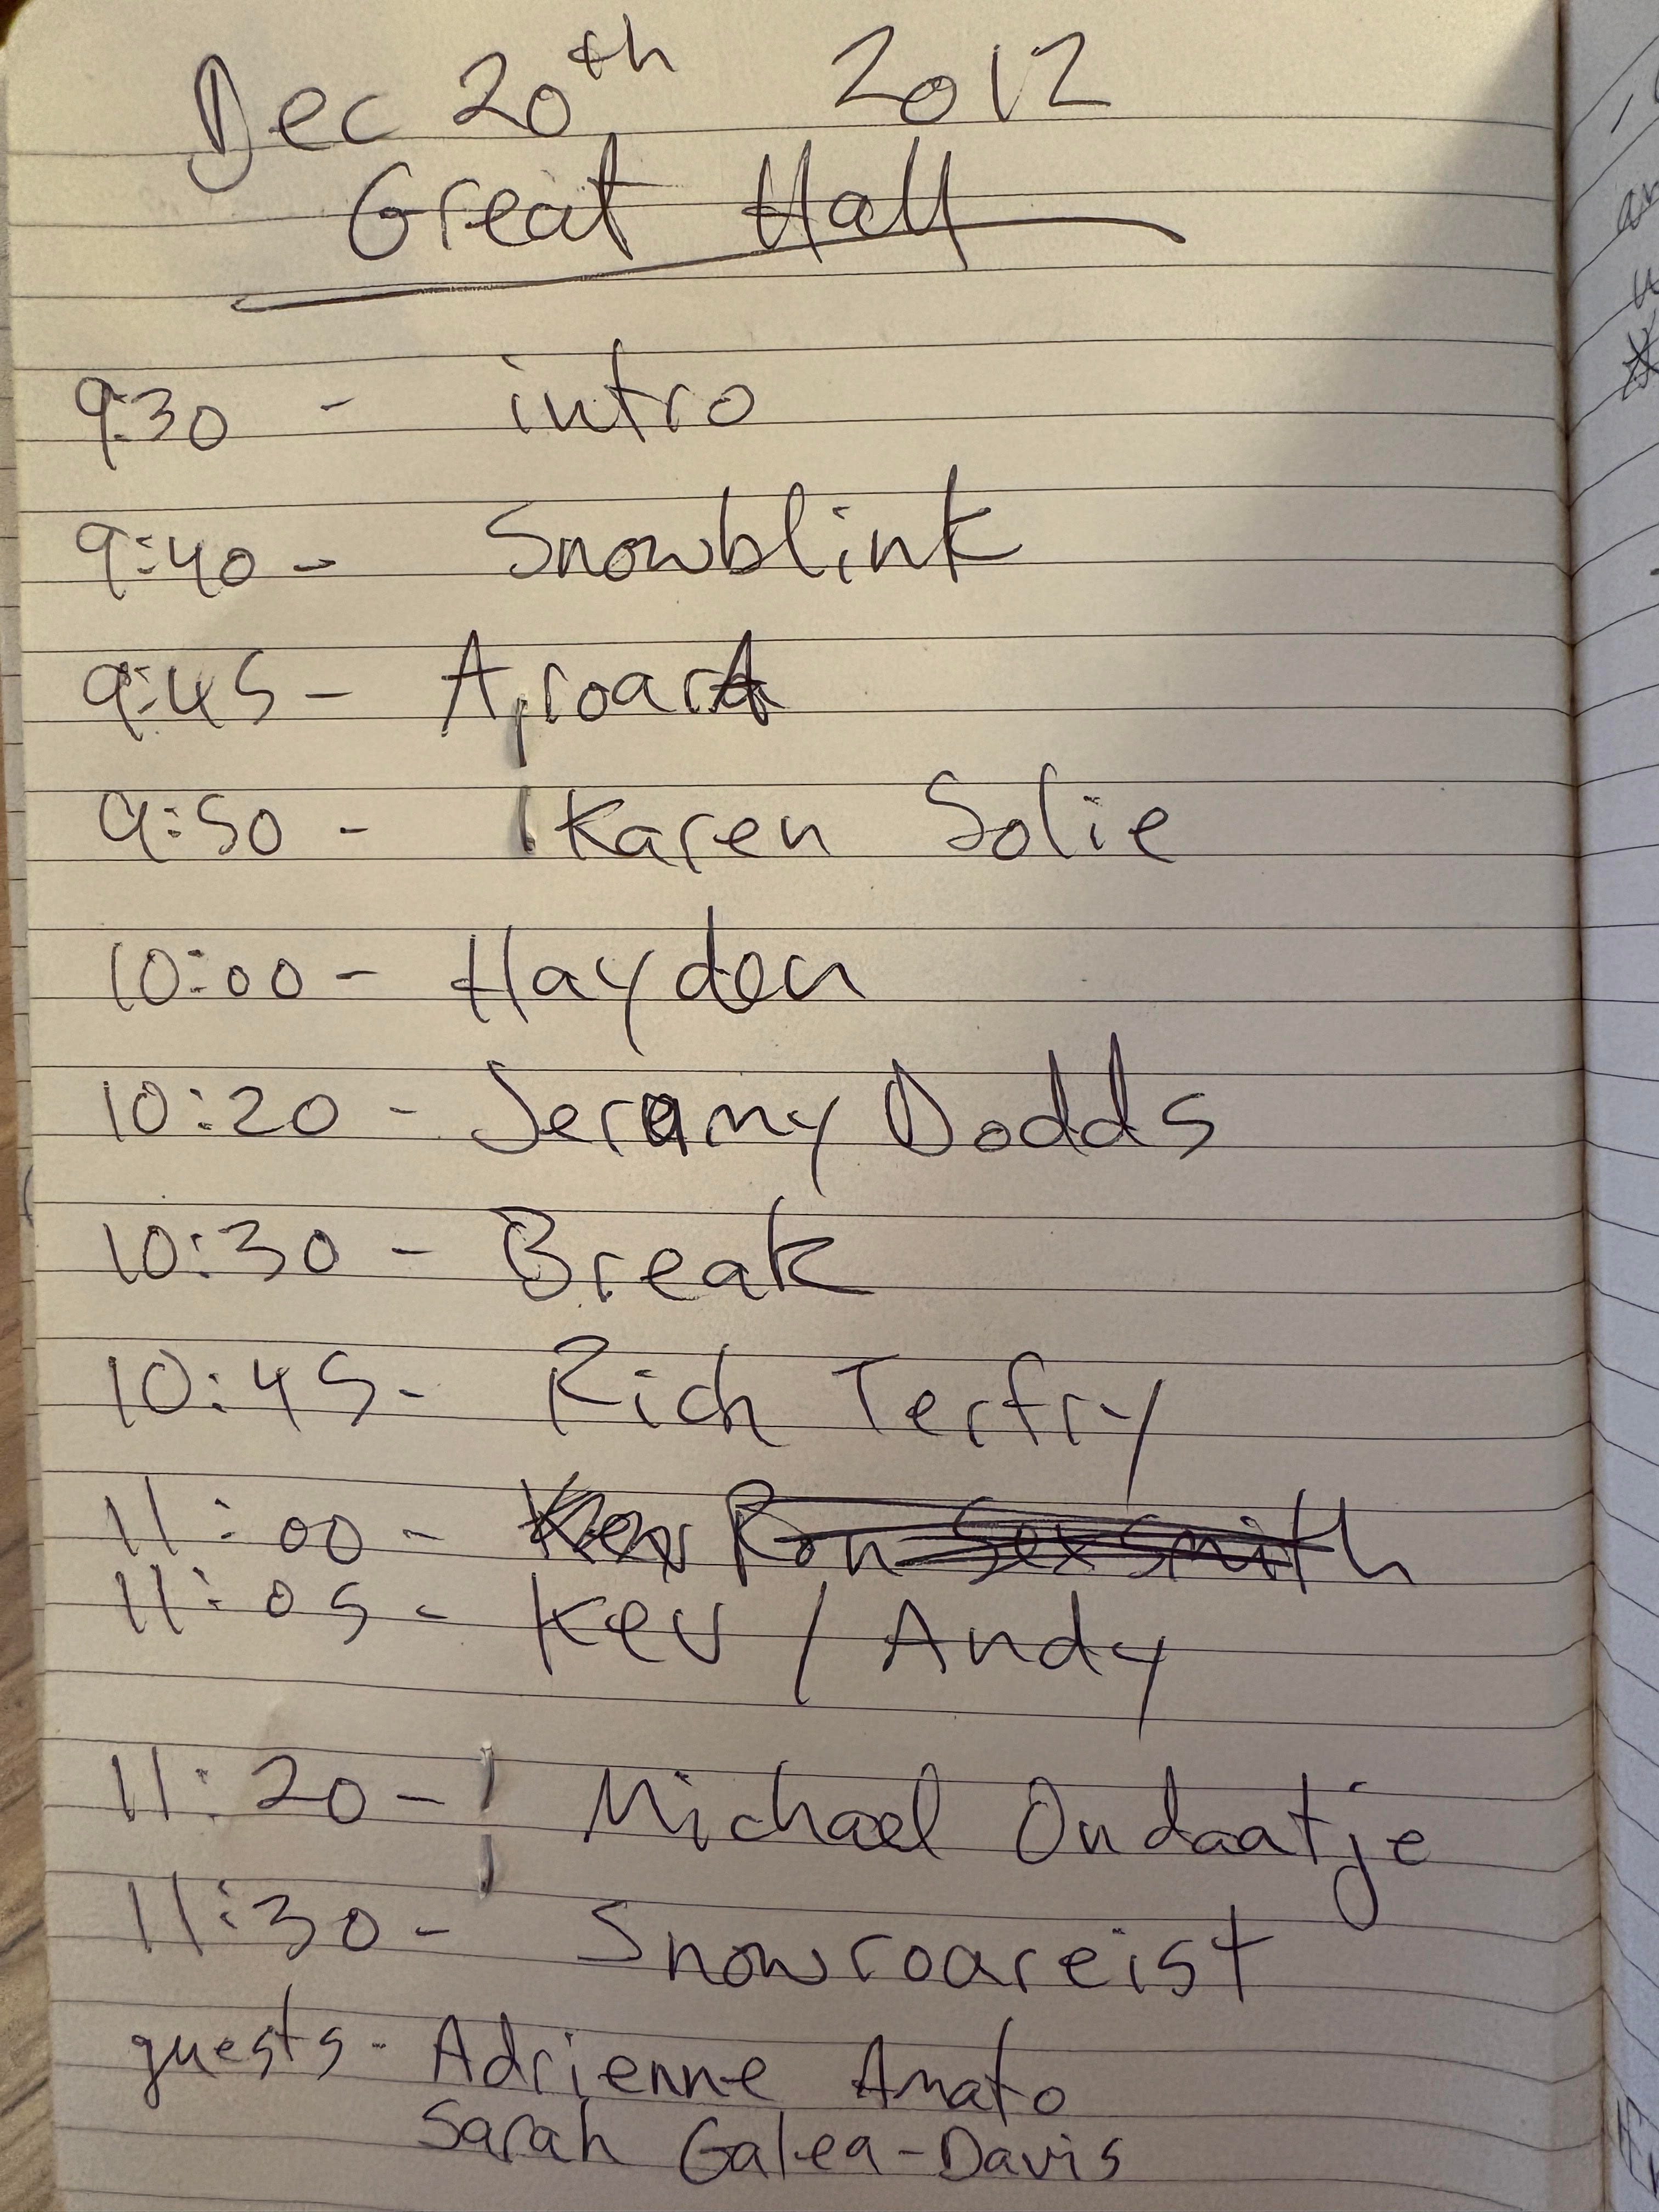 Dec 20th, 2012
Great Hall
9:30 - intro
9:40 - Snowblink
9:45 - Aroara
9:50 - Karen Solie
10:00 - Hayden
10:20 - Jeramy Dodds
10:30 - Break
10:45 - Rich Terfry
11:00 - Kev Ron Sexsmith
11:05 - Kev / Andy
11:20 - Michael Ondaatje
11:30 - Snowroareist
guests - Adrienne Amato
Sarah Galea-Davis